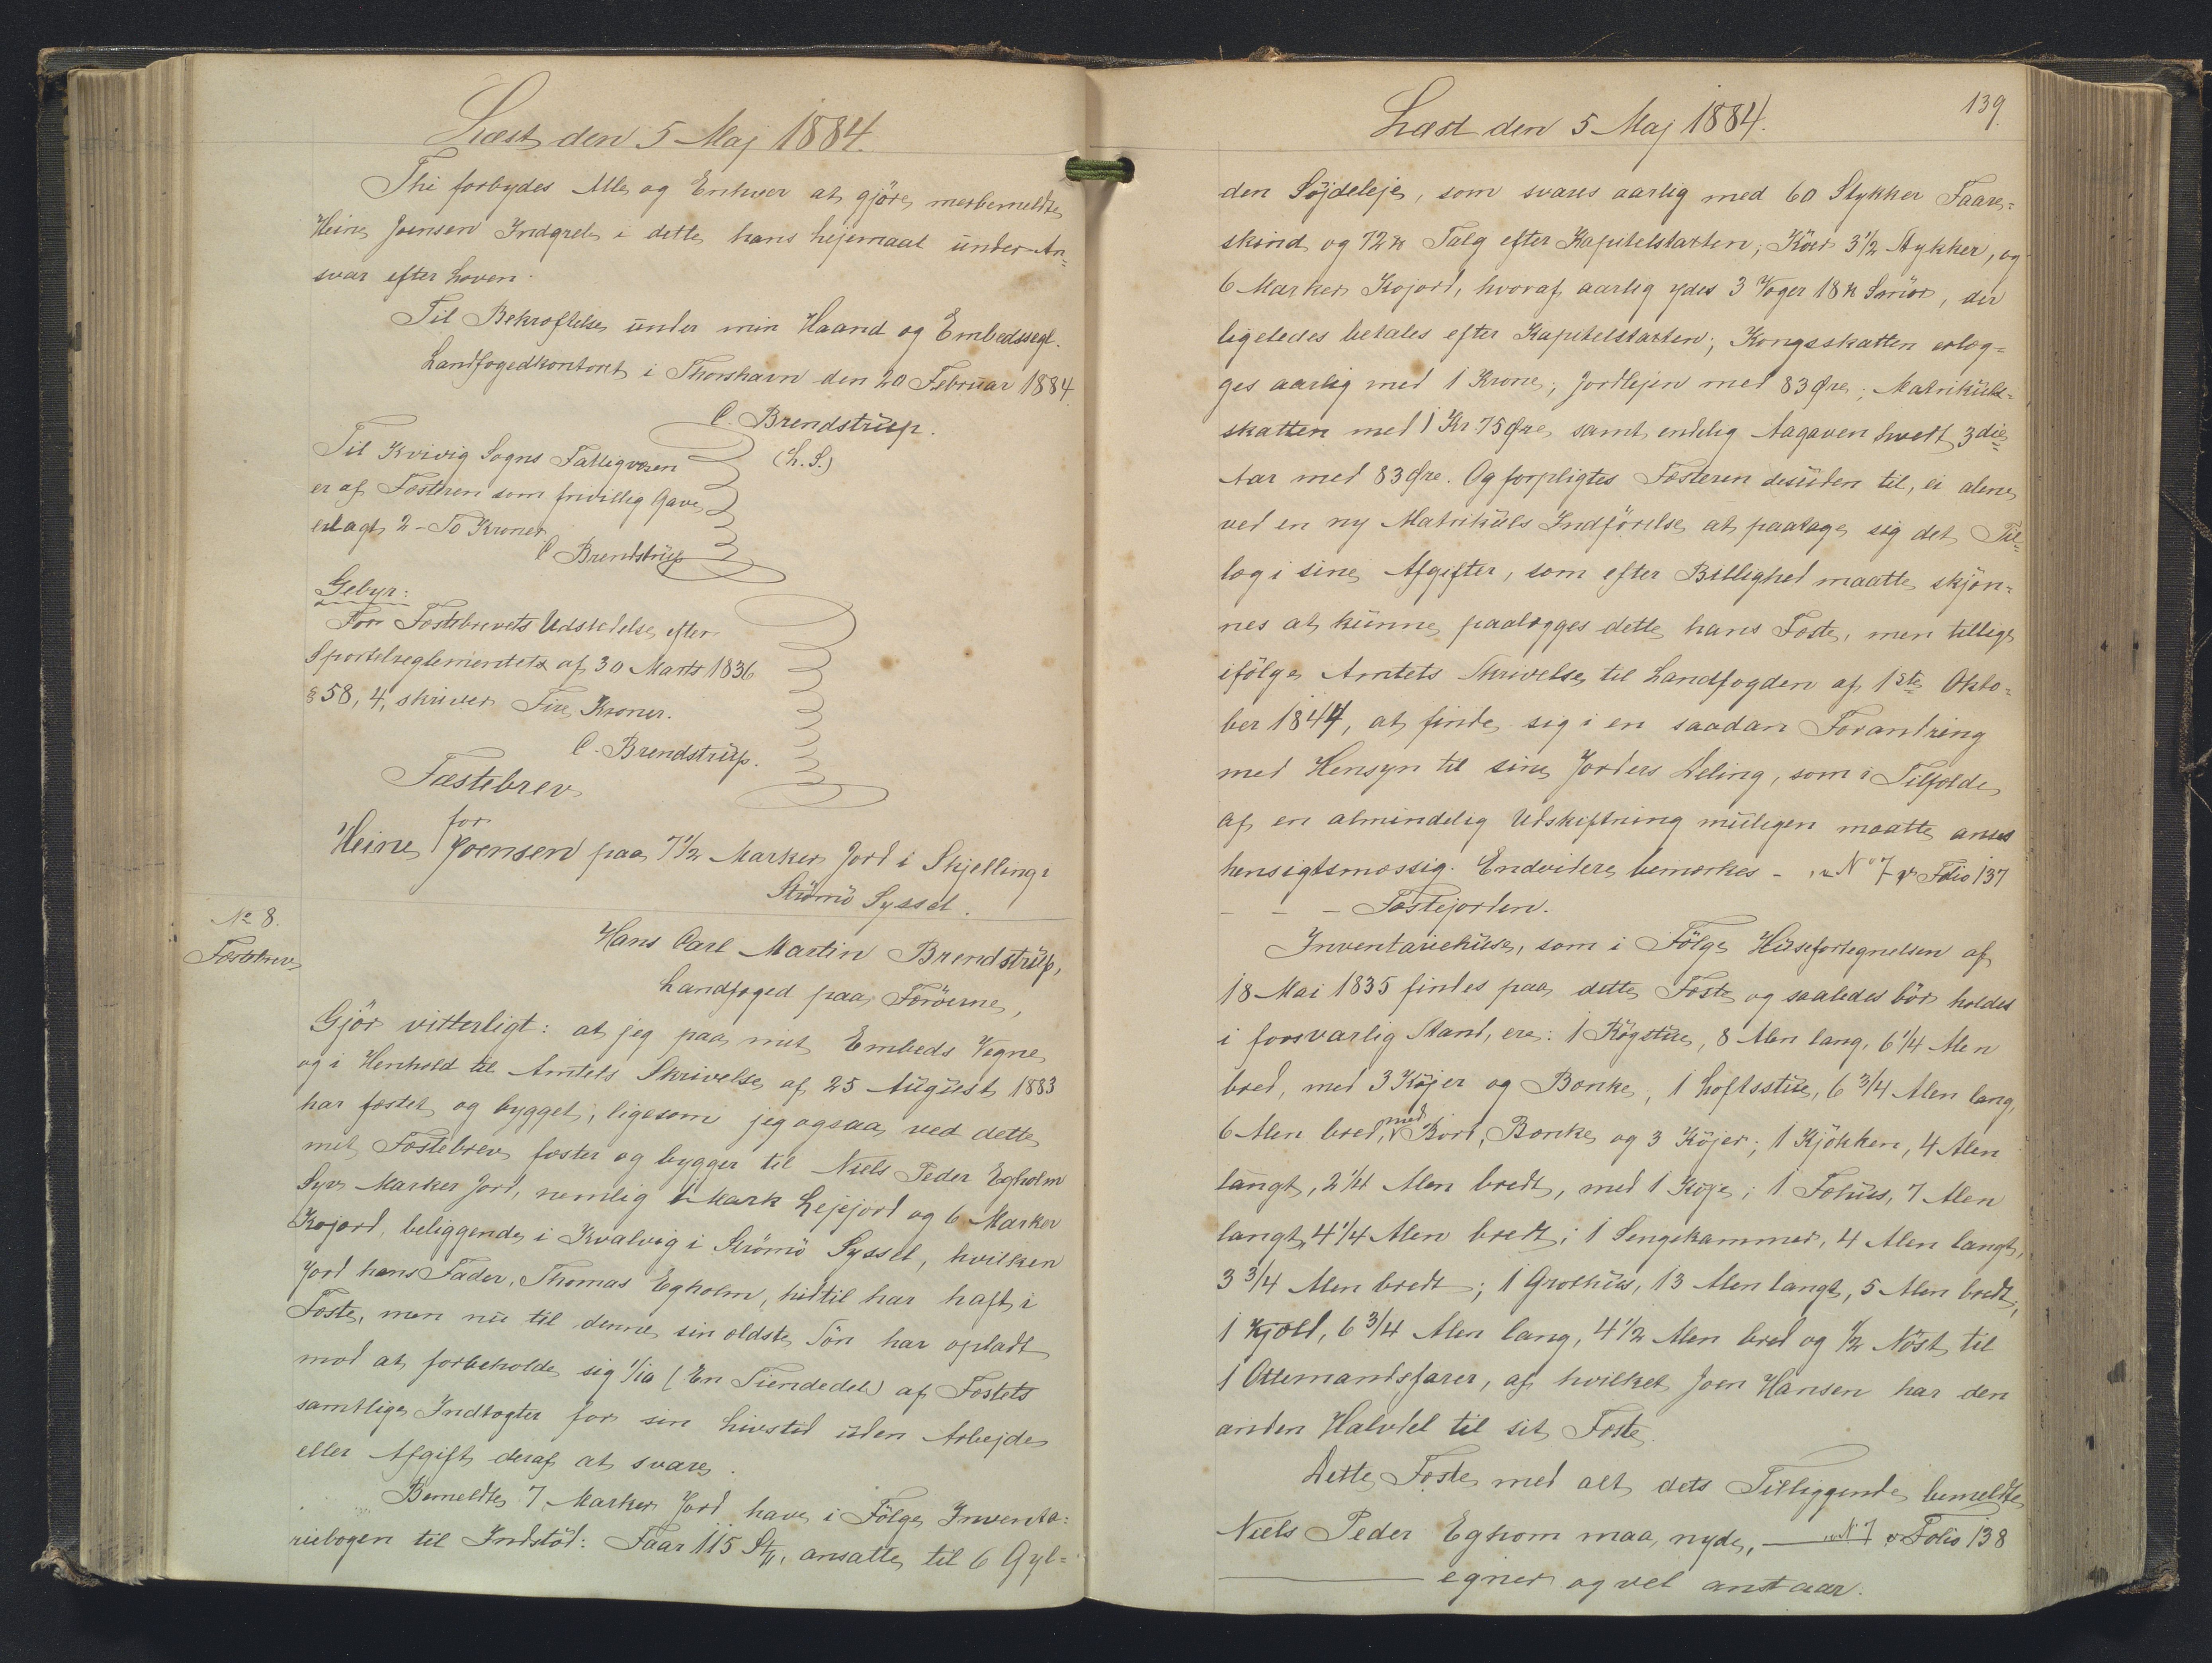 Læst den 5 Maj 1884.
Thi forbydes Alle og Enhver at gjöre merbemeldte
Heine Joensen Indgreb i dette hans Lejemaal under An=
svar efter Loven.
Til Bekræftelse under min Haand og Embedssegl.
Landfogedkontoret i Thorshavn den 20 Februar 1884.
C. Brendstrup.
(L. S.)
Til Kvivig Sogns Fattigvæsen
er af Fæsteren som frivillig Gave
erlagt 2 - To Kroner
C Brendstrup
Gebyr:
For Fæstebrevets Udstedelse efter
Sportelreglementets af 30 Marts 1836
§ 58, 4, skriver Fire Kroner.
C. Brendstrup.
Fæstebrev
for
Heine Joensen paa 7 1/2 Marker Jord i Skjelling i
Strömö Syssel.
No 8.
Fæstebrev
Hans Carl Martin Brendstrup,
Landfoged paa Færöerne,
Gjör vitterligt: at jeg paa mit Embeds Vegne
og i Henhold til Amtets Skrivelse af 25 August 1883
har fæstet og bygget, ligesom jeg ogsaa ved dette
mit Fæstebrev fæster og bygger til Niels Peder Egholm
Syv Marker Jord, nemlig 1 Mark Lejejord og 6 Marker
Kojord, beliggende i Kvalvig i Strömö Syssel, hvilken
Jord hans Fader, Thomas Egholm, hidtil har haft i
Fæste, men nu til denne sin ældste Sön har opladt
mod at forbeholde sig 1/10 (En Tiendedel) af Fæstets
samtlige Indtægter for sin Livstid uden Arbejde
eller Afgift deraf at svare.
Bemeldte 7 Marker Jord have i Fölge Inventa=
riebogen til Indstöd: Faar 115 Stk, ansatte til 6 Gyl=
139
Læst den 5 Maj 1884.
den Söjdeleje, som svares aarlig med 60 Stykker Faare=
skind og 72 ℔ Talg efter Kapitelstaxten; Köer 3 1/2 Stykker, og
6 Marker Kojord, hvoraf aarlig ydes 3 Voger 18 ℔ Smör, der
ligeledes betales efter Kapitelstaxten; Kongsskatten erlæg=
ges aarlig med 1 Krone; Jordlejen med 83 Øre; Matrikuls=
skatten med 1 Kr. 75 Øre samt endelig Aagaven hvert 3die
Aar med 83 Øre. Og forpligtes Fæsteren desuden til, ei alene
ved en ny Matrikuls Indförelse at paatage sig det Til=
læg i sine Afgifter, som efter Billighed maatte skjön=
nes at kunne paalægges dette hans Fæste, men tillige
ifölge Amtets Skrivelse til Landfogden af 1ste Okto=
ber 1844, at finde sig i en saadan Forandring
med Hensyn til sine Jorders Deling, som i Tilfælde
af en almindelig Udskiftning muligen maatte anses
hensigtsmæssig. Endvidere bemærkes - No 7 Folio 137
- - - Fæstejorden.
Inventariehuse, som i Fölge Huusefortegnelsen af
18 Mai 1835 findes paa dette Fæste og saaledes bör holdes
i forsvarlig Stand, ere: 1 Rögstue, 8 Alen lang, 6 1/4 Alen
bred, med 3 Köjer og Bænke, 1 Loftsstue, 6 3/4 Alen lang,
6 Alen bred, med Bord, Bænke og 3 Köjer; 1 Kjökken, 4 Alen
langt, 2 1/4 Alen bredt, med 1 Köje; 1 Fæhus, 7 Alen
langt, 4 1/4 Alen bredt; 1 Sengekammer, 4 Alen langt,
3 3/4 Alen bredt; 1 Grothus, 13 Alen langt, 5 Alen bredt;
1 Kjæld, 6 3/4 Alen lang, 4 1/2 Alen bred og 1/2 Nöst til
1 Ottemandsfarer, af hvilket Joen Hansen har den
anden Halvdel til sit Fæste.
Dette Fæste med alt dets Tilliggende bemeldte
Niels Peder Eghom maa nyde, — No 7 Folio 138
— egner og vel anstaar.